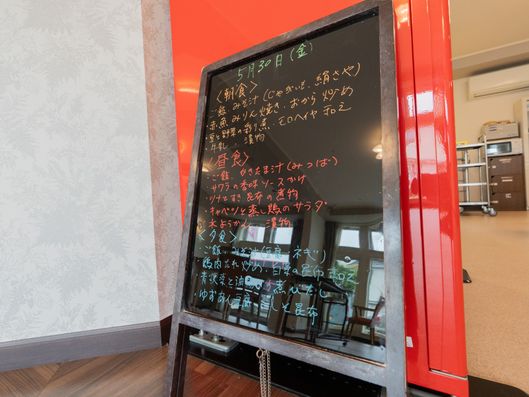 5月30日(金)
〈朝食〉
・ご飯、みそ汁(じゃがいも、絹さや)
・赤魚みりん焼き、おから炒め
・豆と野菜の彩り煮、モロヘイヤ和え
・牛乳、漬物
〈昼食〉
・ご飯、かきたま汁(みつば)
・サワラの香味ソースかけ
・ツナとすき昆布の煮物
・キャベツと蒸し鶏のサラダ
・水ようかん、漬物
〈夕食〉
・ご飯、みそ汁(
・鶏肉たれ炒め、白菜の
・青沢菜と
・ゆずあん豆腐、しそ昆布